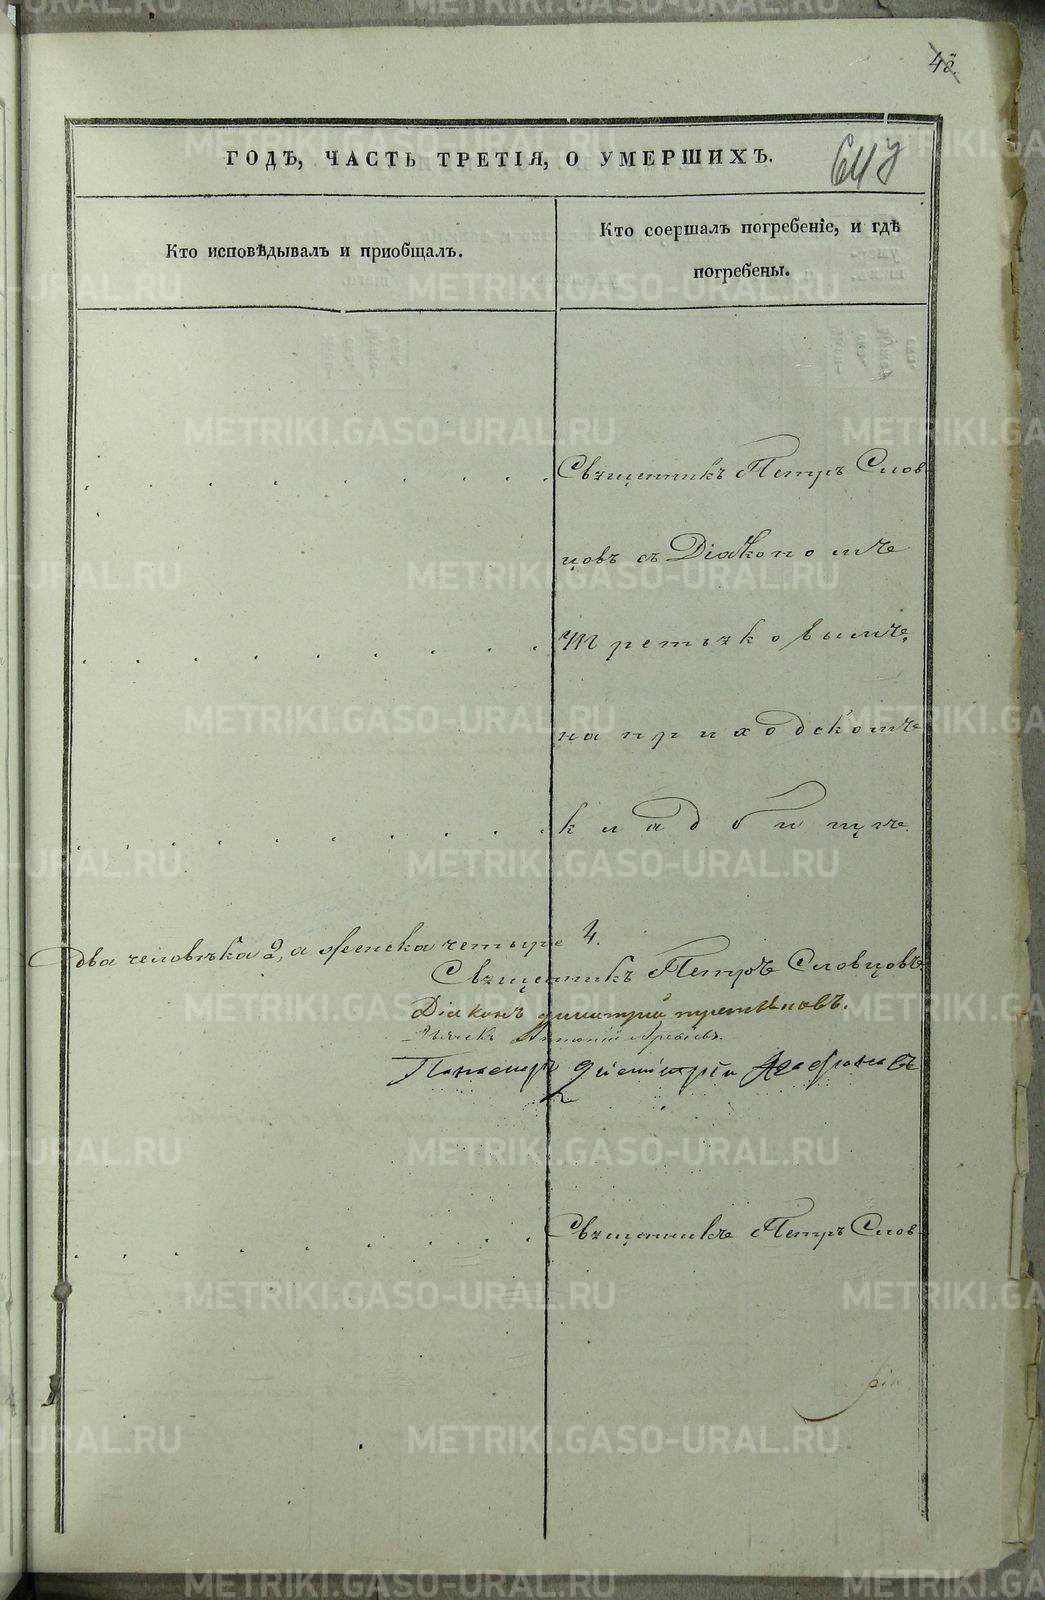 42.
ГОДЪ, ЧАСТЬ ТРЕТІЯ, О УМЕРШИХЪ.
Кто исповѣдывалъ и приобщалъ.
Кто соершалъ погребеніе, и гдѣ
погребены.
Священникъ Петръ Слов
цовъ съ Діакономъ
Третьяковымъ,
на приходскомъ
кладбищѣ.
два человѣка 2, а женска четыре 4.
Священникъ Петръ Словцовъ
Діаконъ Димитрій Третьяковъ.
Дьячекъ Антоній
Пономарь Димитрій
Священникъ Петръ Слов
METRIKI.GASO-URAL.RU